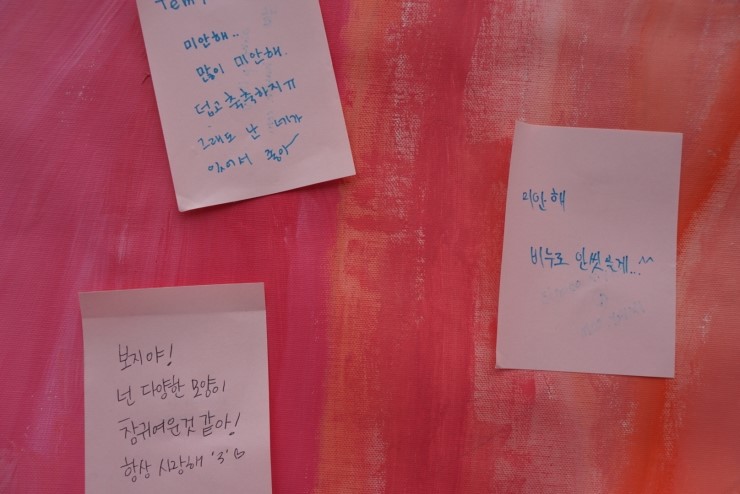 미안해..
많이 미안해.
덥고 축축하지ㅠ
그래도 난 네가
있어서 좋아
미안해
비누로 안씻을게..^^
보지야!
넌 다양한 모양이
참귀여운것 같아!
항상 사랑해 '3' ♡